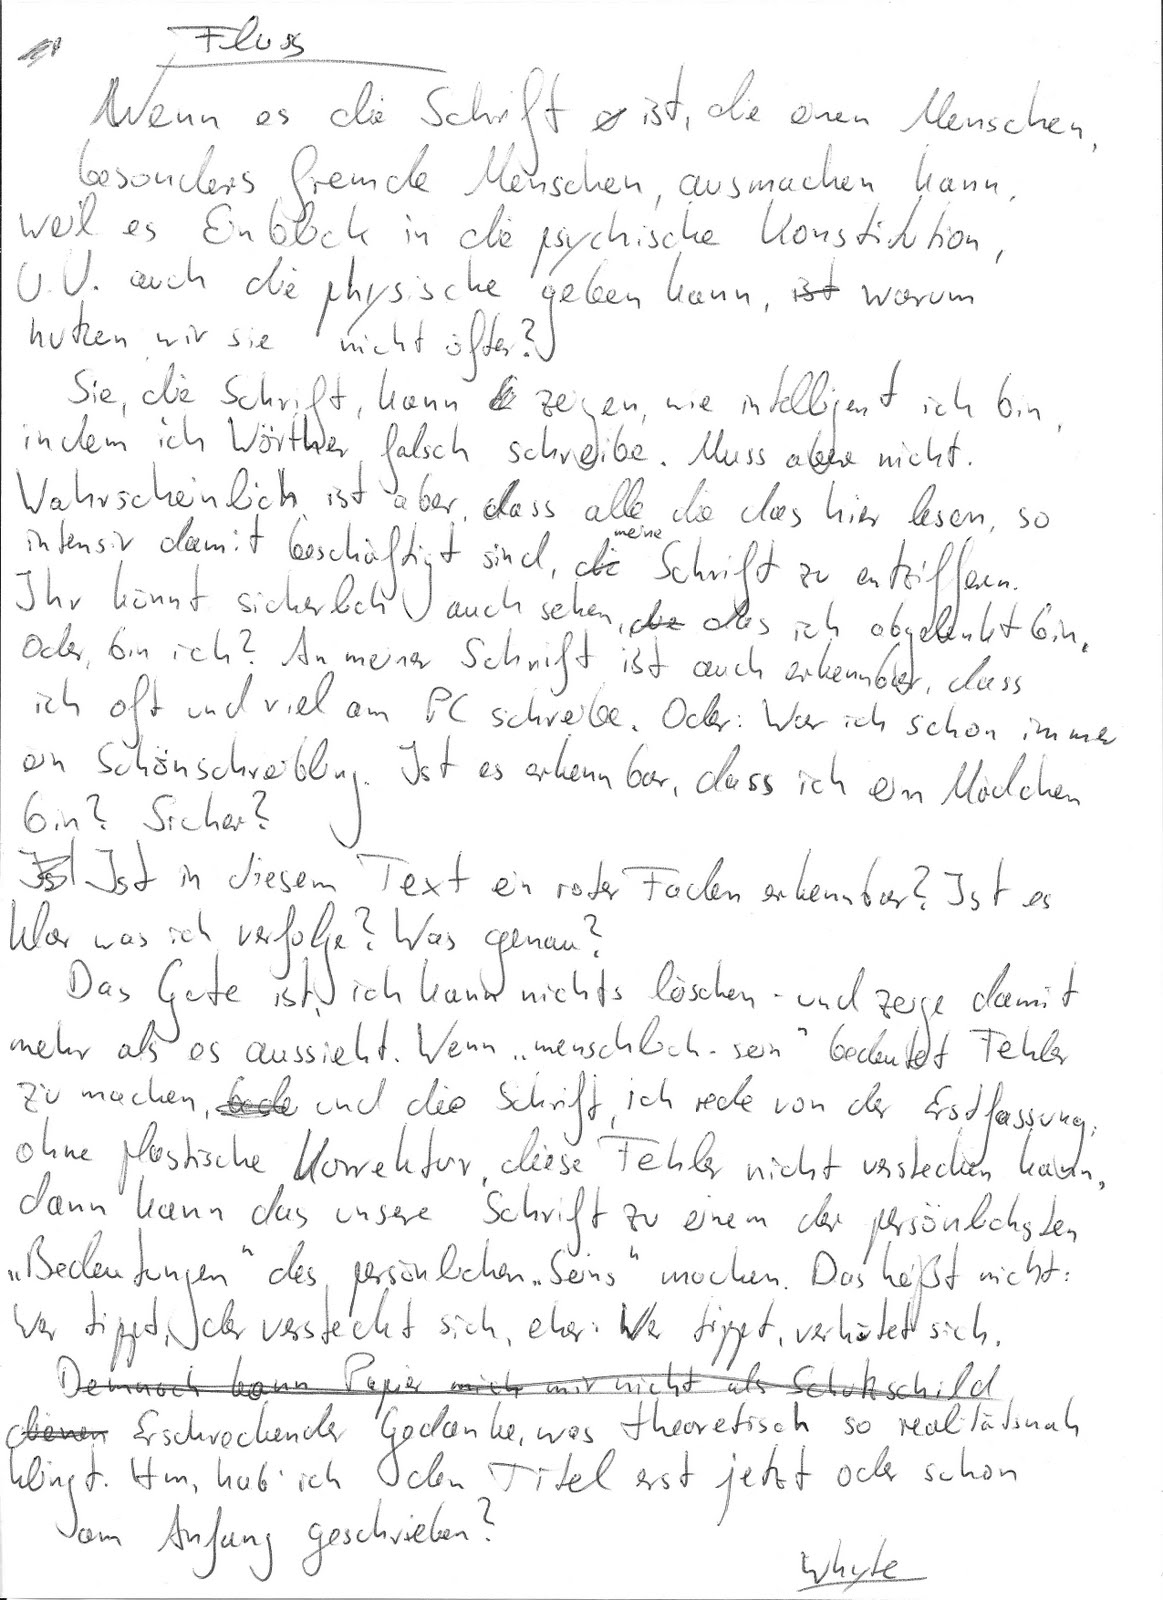 Fluss
Wenn es die Schrift ist, die einen Menschen,
besonders fremde Menschen, ausmachen kann,
weil es Einblick in die psychische Konstitution,
U.U. auch die physische geben kann, ist warum
nutzen wir sie nicht öfter?
Sie, die Schrift, kann zeigen, wie intelligent ich bin,
indem ich Wörther falsch schreibe. Muss aber nicht.
Wahrscheinlich ist aber, dass alle die das hier lesen, so
intensiv damit beschäftigt sind, die meine Schrift zu entziffern.
Ihr könnt sicherlich auch sehen, das ich abgelenkt bin.
Oder, bin ich? An meiner Schrift ist auch erkennbar, dass
ich oft und viel am PC schreibe. Oder: War ich schon immer
ein Schönschreibling. Ist es erkennbar, dass ich ein Mädchen
bin? Sicher?
Ist Ist in diesem Text ein roter Faden erkennbar? Ist es
klar was ich verfolge? Was genau?
Das Gute ist, ich kann nichts löschen - und zeige damit
mehr als es aussieht. Wenn „menschlich-sein" bedeutet Fehler
zu machen, und die Schrift, ich rede von der Erstfassung,
ohne plastische Korrektur, diese Fehler nicht verstecken kann,
dann kann das unsere Schrift zu einem der persönlichsten
„Bedeutungen" des persönlichen „Seins" machen. Das heißt nicht:
Wer tippt, der versteckt sich, eher: Wer tippt, verhütet sich.
Demnach kann Papier mich mir nicht als Schutzschild
dienen Erschreckender Gedanke, was theoretisch so realitätsnah
klingt. Hm, hab' ich den Titel erst jetzt oder schon
am Anfang geschrieben?
Whyte